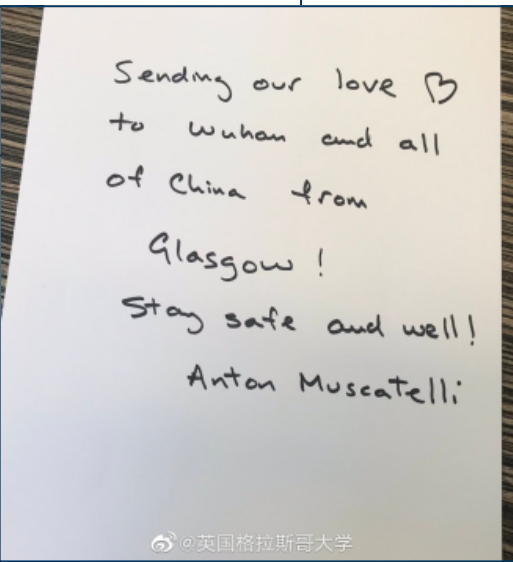 Sending our love ♡
to Wuhan and all
of China from
Glasgow!
Stay safe and well!
Anton Muscatelli
@英国格拉斯哥大学